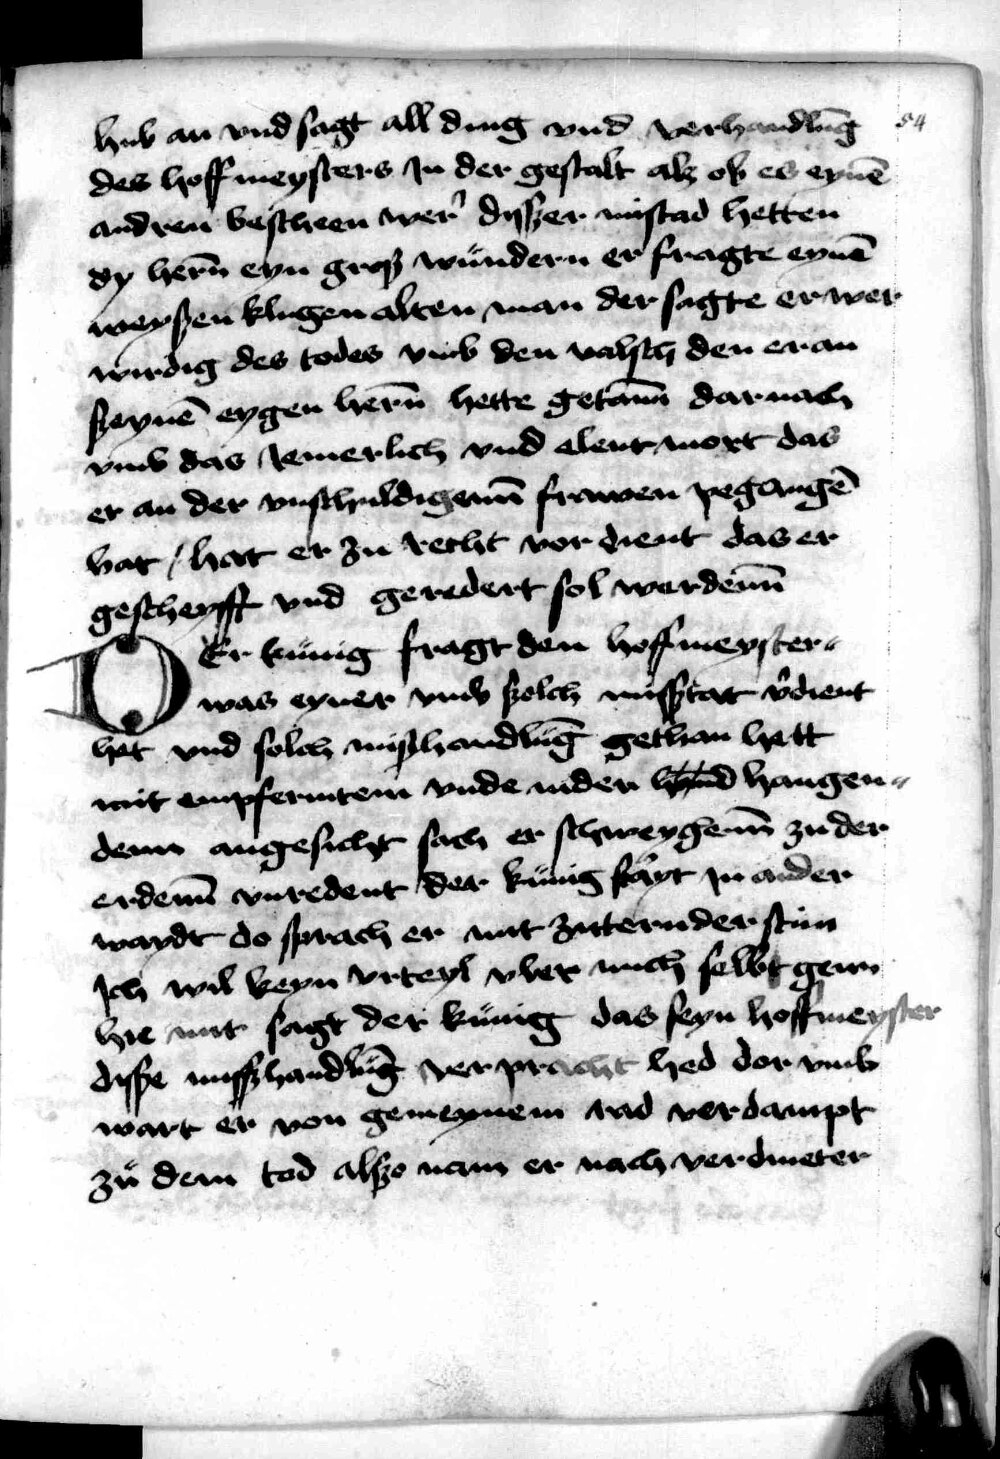 54
hub an vnd sagt all ding vnd verhandlūg
des hoffmeysters jn der gestalt alz ob es eynē
andren bescheen wer' dysser mistad hetten
dy hern̄ eyn groß wůndern er fragte eynē
weyßen klugen alten man der sagte er wer
wirdig des todes vmb den valsch den er an
ßeynē eygen hern̄ hette getann̄ darnach
vmb das jemerlich vnd elent mort das
er an der vnschuldigenn̄ frawen pegangē
hat / hat er zu recht vordient das er
gescheyfft vnd geredert sol werdenn̄
DEr kůnig fragt den hoffmeyster
was eyner vmb ßolch missetat v'dient
het vnd solch mißhandlūg gethan hett
mit empferintem vnde nider hand hangen
denn angesicht sach er schweygenn̄ zu der
erdenn̄ vnredent der kůnig frayt jn ander
waydt do sprach er mit zitternder stim
Jch wil keyn vrteyl vber mich selbst gebn
hie mit sagt der kůnig das seyn hoffmeyster
disße mißhandlūg verpracht hed dor vmb
wart er von gemeynem rad verdampt
zů dem tod alßo nam er nach verdineter